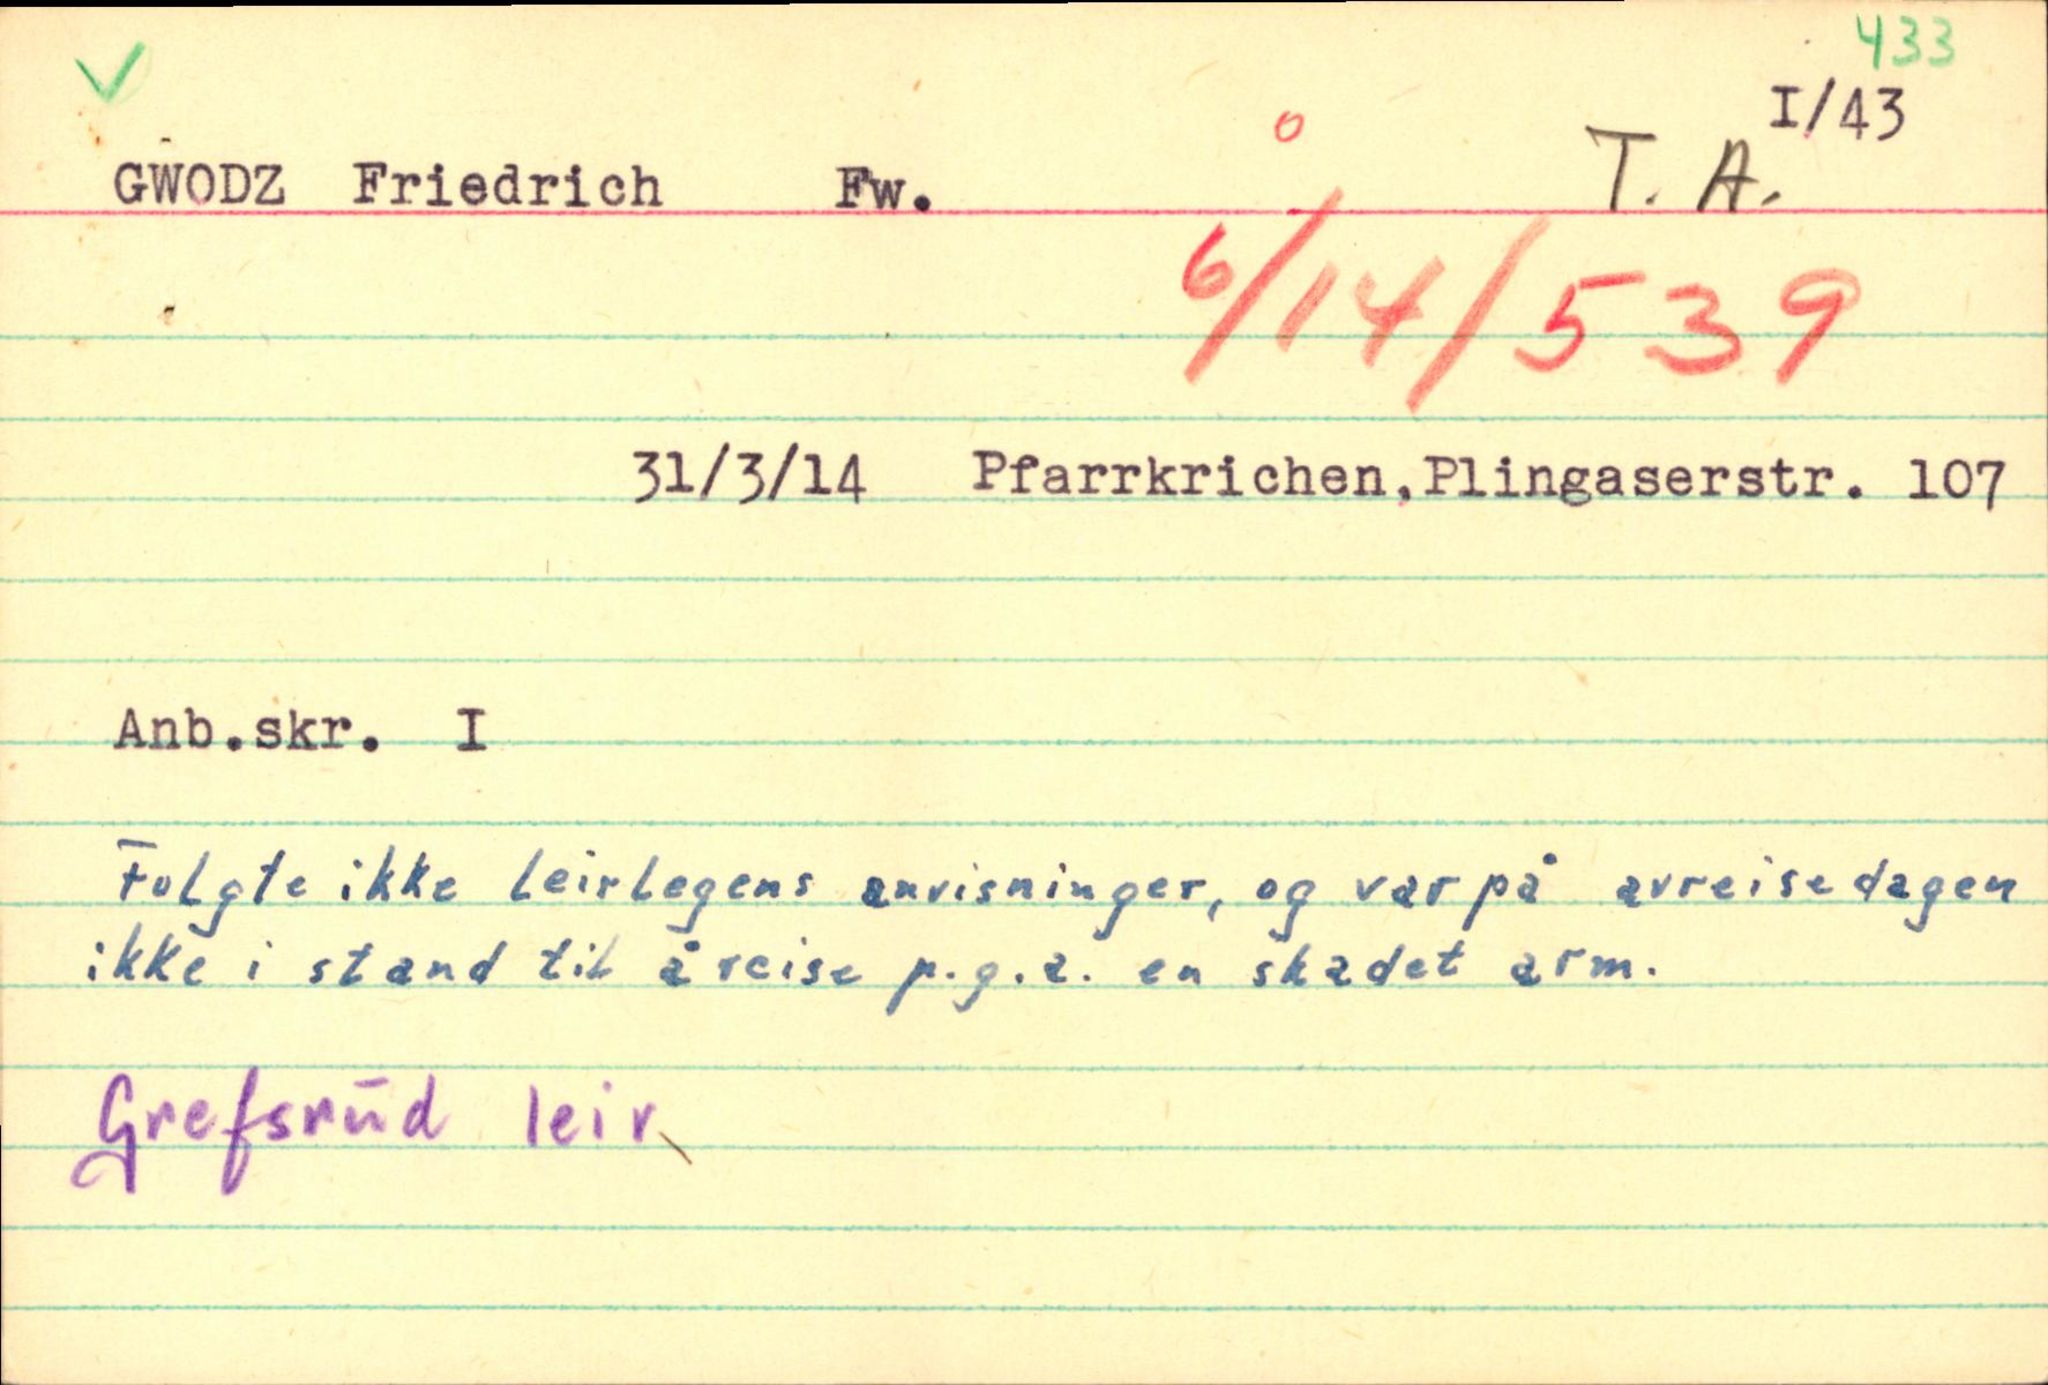 433
I/43
T. A.
GWODZ Friedrich Fw.
6/14/539
31/3/14 Pfarrkrichen, Plingaserstr. 107
Anb.skr. I
Fulgte ikke leirlegens anvisninger, og var på avreisedagen
ikke i stand til å reise p.g.a. en skadet arm.
Grefsrūd leir